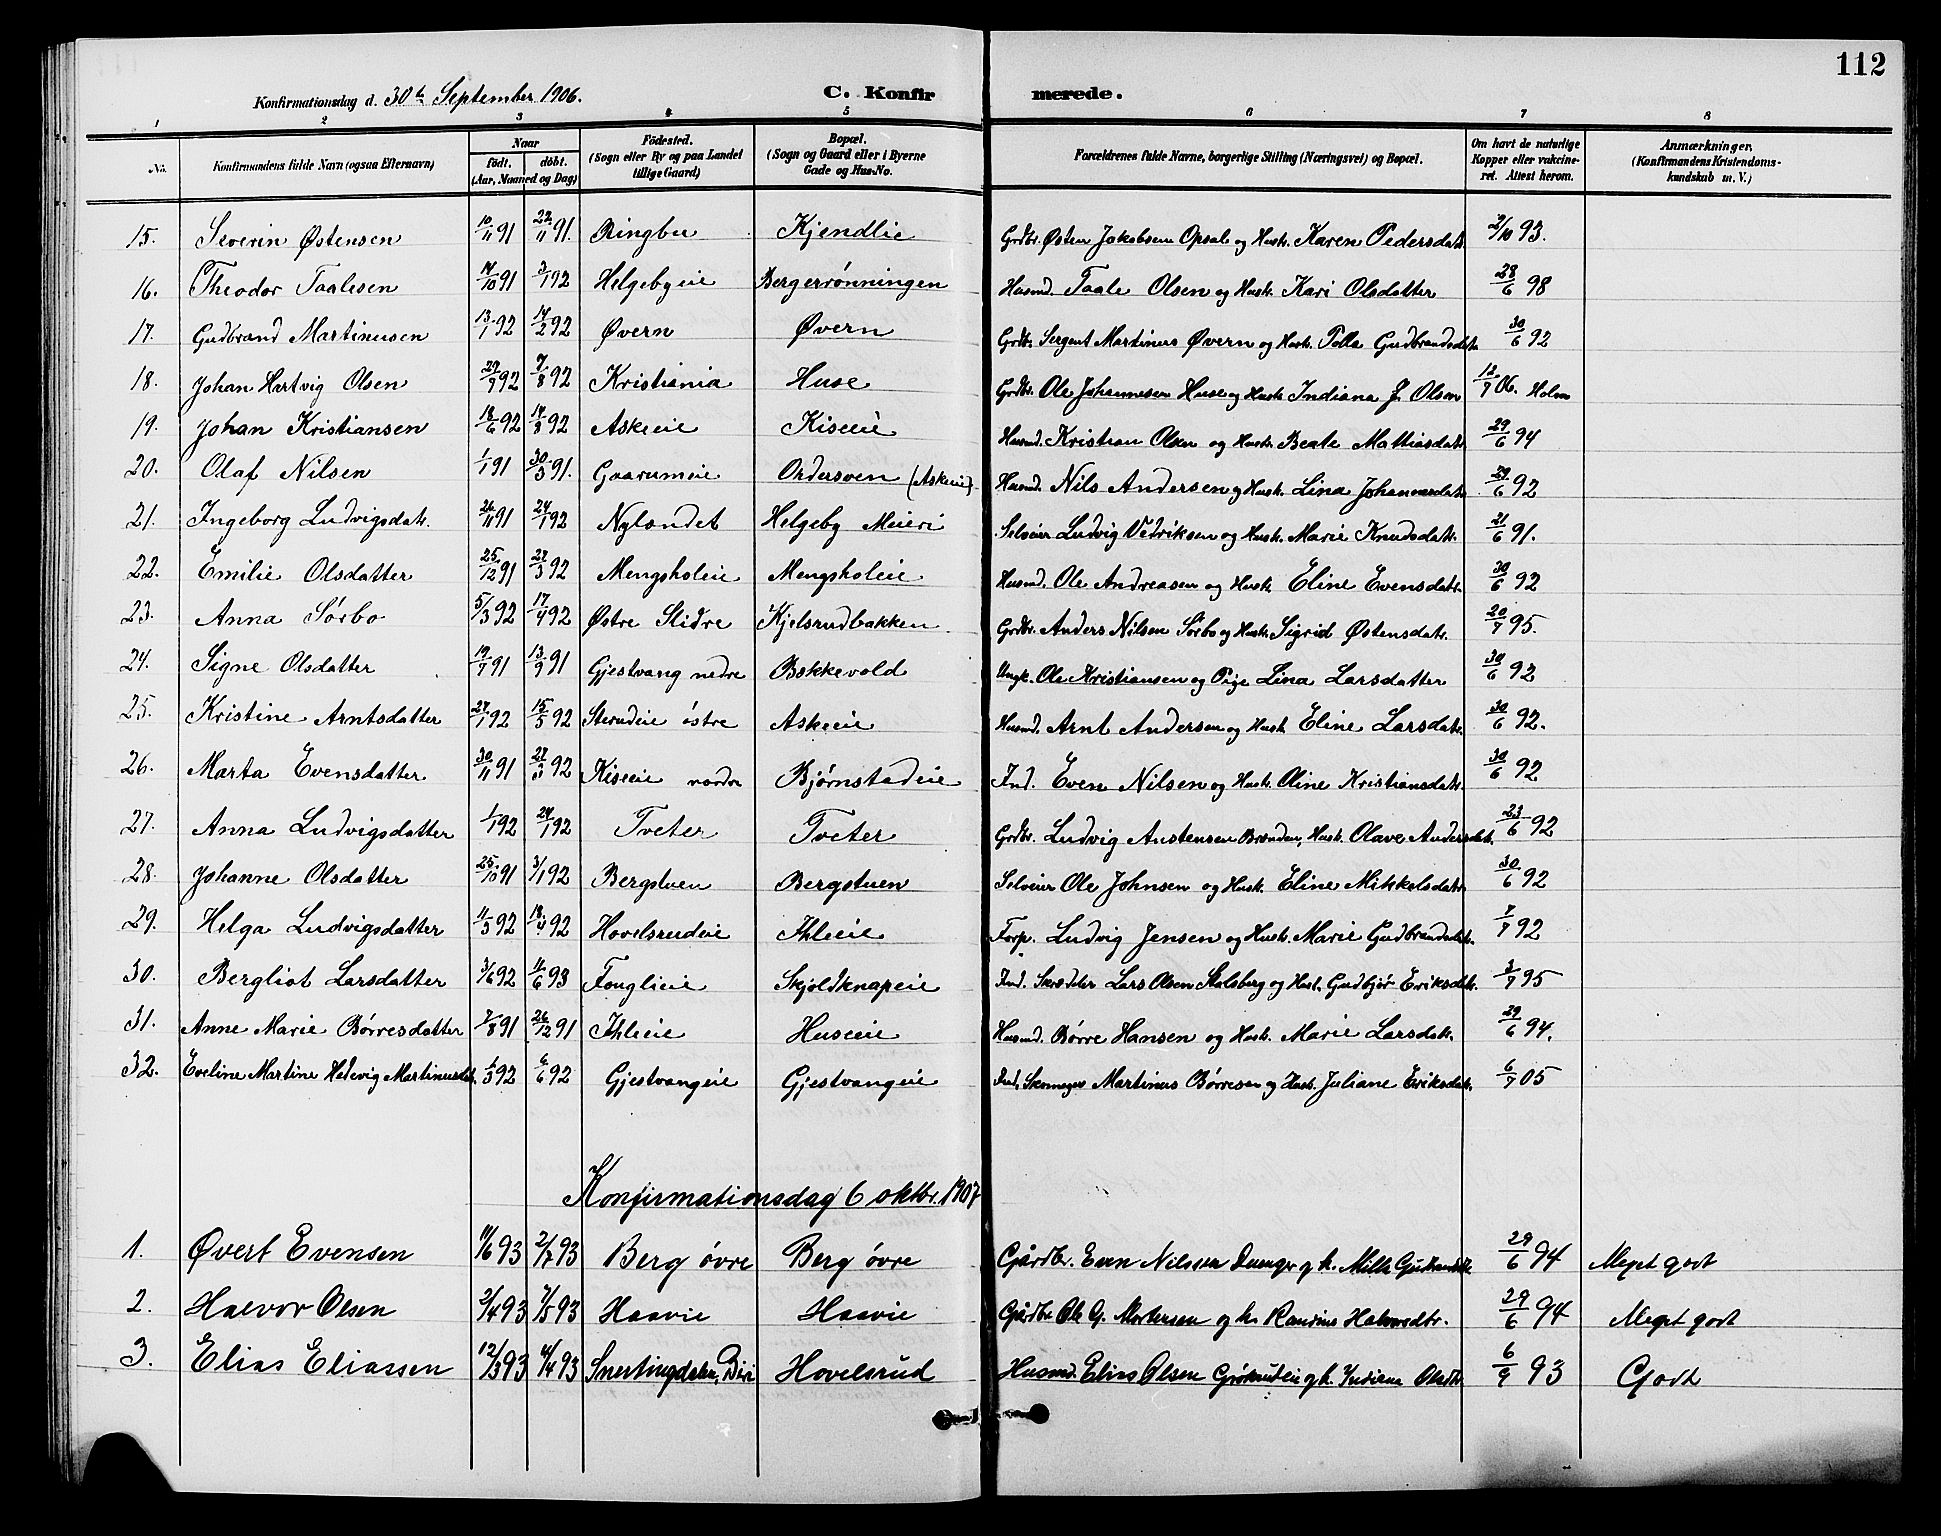 112
Konfirmationsdag d. 30te September 1906. C. Konfirmerede.
1 2 3 4 5 6 7 8
No. Konfirmandens fulde Navn (ogsaa Efternavn) Naar født, døbt. (Aar, Maaned og Dag) Fødested. (Sogn eller By og paa Landet tillige Gaard) Bopæl. (Sogn og Gaard eller i Byerne Gade og Hus-No. Forældrenes fulde Navne, borgerlige Stilling (Næringsvei) og Bopæl. Om havt de naturlige Kopper eller vakcineret. Attest herom. Anmærkninger, (Konfirmandens Kristendomskundskab m. V.)
15. Severin Østensen 10/11 91 22/11 91. Ringbu Kjendlie Grdbr. Østen Jakobsen Opsal og Hustr. Karen Pedersdatr. 2/10 93.
16. Theodor Taalesen 14/10 91 3/1 92 Helgebyeie Bergerrønningen Husmd. Taale Olsen og Hustr. Kari Olsdatter 28/6 98
17. Gudbrand Martinusen 13/1 92 14/2 92 Øvern Øvern Grdbr. Sergent Martinus Øvern og Hustr. Gudbrandsdatr. 30/6 92
18. Johan Hartvig Olsen 7/8 92 Kristiania Huse Grdbr. Ole Johannesen Huse og Hustr. Indiana J. Olsen 12/7 06. Holm
19. Johan Kristiansen 18/6 92 14/8 92 Askeeie Kiseeie Husmd. Kristian Olsen og Hustr. Beate Mathiasdatr. 29/6 94
20. Olaf Nilsen 1/1 91 30/3 91. Gaarumeie Ordersven (Askeeie) Husmd. Nils Andersen og Hustr. Lina Johannesdatr. 29/6 92
21. Ingeborg Ludvigsdatr. 26/11 91 24/1 92 Nylandet Helgeby Meieri Selveier Ludvig Vedriksen og Hustr. Marie Knudsdatr. 21/6 91.
22. Emilie Olsdatter 25/12 91 27/3 92 Mengsholeie Mengsholeie Husmd. Ole Andreasen og Hustr. Eline Evensdatr. 30/6 92
23. Anna Sørbo 5/3 92 17/4 92 Østre Slidre Kjelsrudbakken Grdbr. Anders Nilsen Sørbo og Hustr. Sigrid Østensdatr. 20/7 95.
24. Signe Olsdatter 19/7 91 13/9 91 Gjestvang nedre Bakkevold Ungk. Ole Kristiansen og Pige Lina Larsdatter 30/6 92
25. Kristine Arntsdatter 27/1 92 15/5 92 Sterudeie østre Askeeie Husmd. Arnt Andersen og Hustr. Eline Larsdatr. 30/6 92.
26. Marta Evensdatter 30/11 91 27/3 92 Kiseeie nordre Bjørnstadeie Ind. Even Nilsen og Hustr. Oline Kristiansdatr. 30/6 92
27. Anna Ludvigsdatter 1/1 92 24/1 92 Tveter Tveter Grdbr. Ludvig Austensen Brenden, Hustr. Olave Andersdatr. 23/6 92
28. Johanne Olsdatter 25/10 91 3/1 92 Bergstuen Bergstuen Selveier Ole Johnsen og Hustr. Eline Mikkelsdatr. 30/6 92
29. Helga Ludvigsdatter 11/3 92 18/4 92 Hovelsrudeie Ihleeie Forp. Ludvig Jensen og Hustr. Marie Gudbrandsdatr. 7/7 92
30. Bergliot Larsdatter 3/6 92 11/6 93 Fonglieie Skjoldknapeie Ind. Skrædder Lars Olsen Stalsberg og Hust. Gudbjør Eriksdatr. 3/7 95
31. Anne Marie Børresdatter 7/8 91 26/12 91 Ihleeie Huseeie Husmd. Børre Hansen og Hustr. Marie Larsdatr. 29/6 94.
32. Eveline Martine Hedevig Martinusdatr. 1/3 92 6/6 92 Gjestvangeie Gjestvangeie Ind. Skomager Martinus Børresen og Hust. Juliane Eriksdatr. 6/7 05
Konfirmationsdag 6 oktbr. 1907
1. Øvert Evensen 11/6 93 2/7 93 Berg øvre Berg øvre Gårdbr. Even Nilssen og h. Gudbrandsdtr 29/6 94 Meget godt
2. Halvor Olsen 2/4 93 7/5 93 Haavie Haavie Gårdbr Ole G. Mortensen og h. Randine Halvorsdtr. 29/6 94 Meget godt
3. Elias Eliassen 12/3 93 4/4 93 Snertingdalen, Biri Hovelsrud Husmd. Elias Olsen og h. Indiana Olsdtr. 6/9 93 Godt